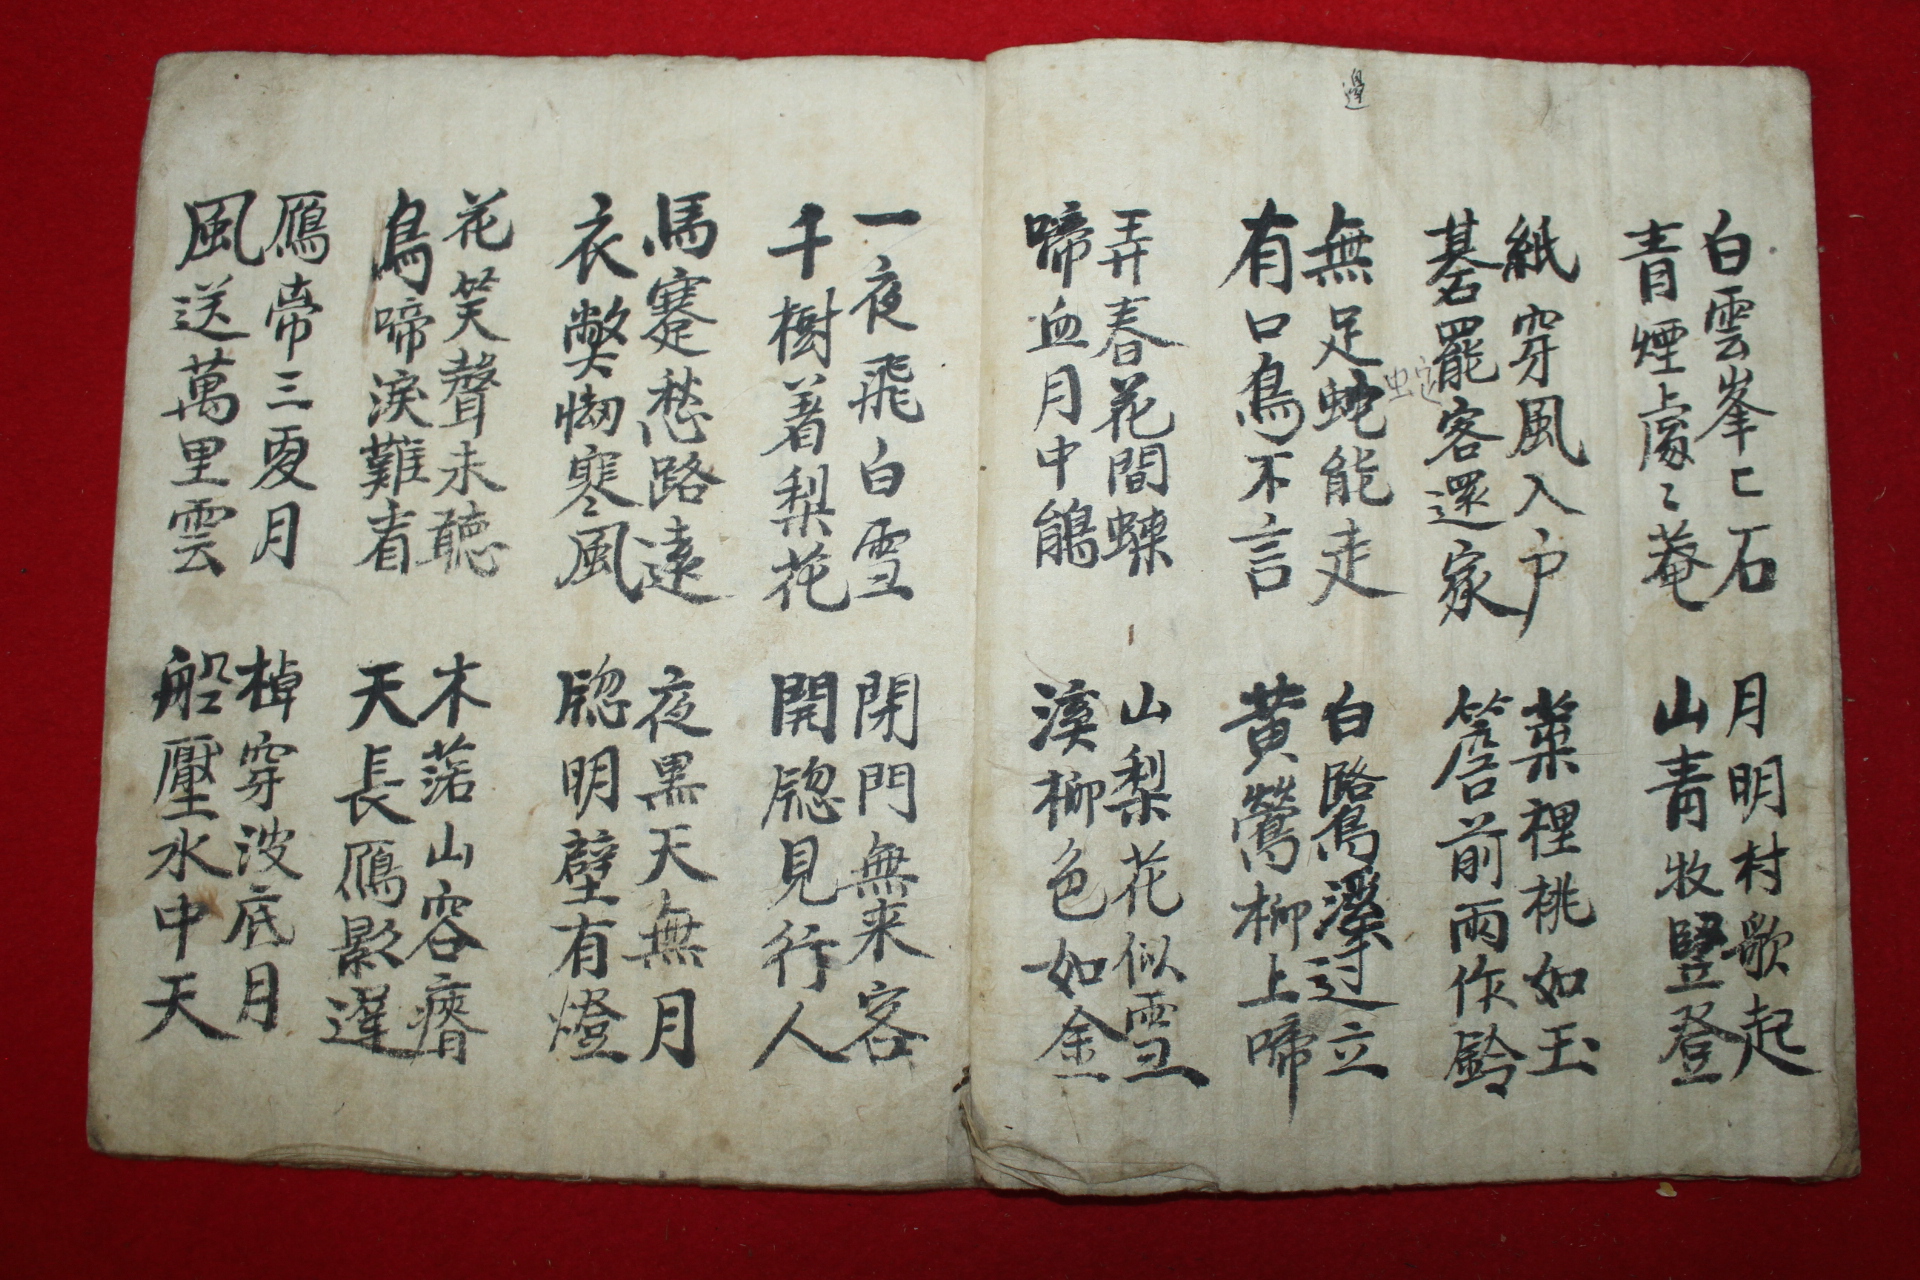 邊
白雲峯〻石
青煙處〻菴
月明村歌起
山青牧竪登
紙穿風入户
碁罷客還家
葉裡桃如玉
簷前雨作鈴
無足蛇能走
有口鳥不言
白鷺溪边立
黃鶯柳上啼
弄春花間蝶
啼血月中鵑
山梨花似雪
溪柳色如金
一夜飛白雪
千樹着梨花
閉門無来客
開牕見行人
馬蹇愁路遠
衣弊寒風
夜黑天無月
牕明壁有燈
花笑聲未聽
鳥啼淚難看
木落山容瘠
天長鴈影遲
鴈啼三更月
風送萬里雲
棹穿波底月
船壓水中天